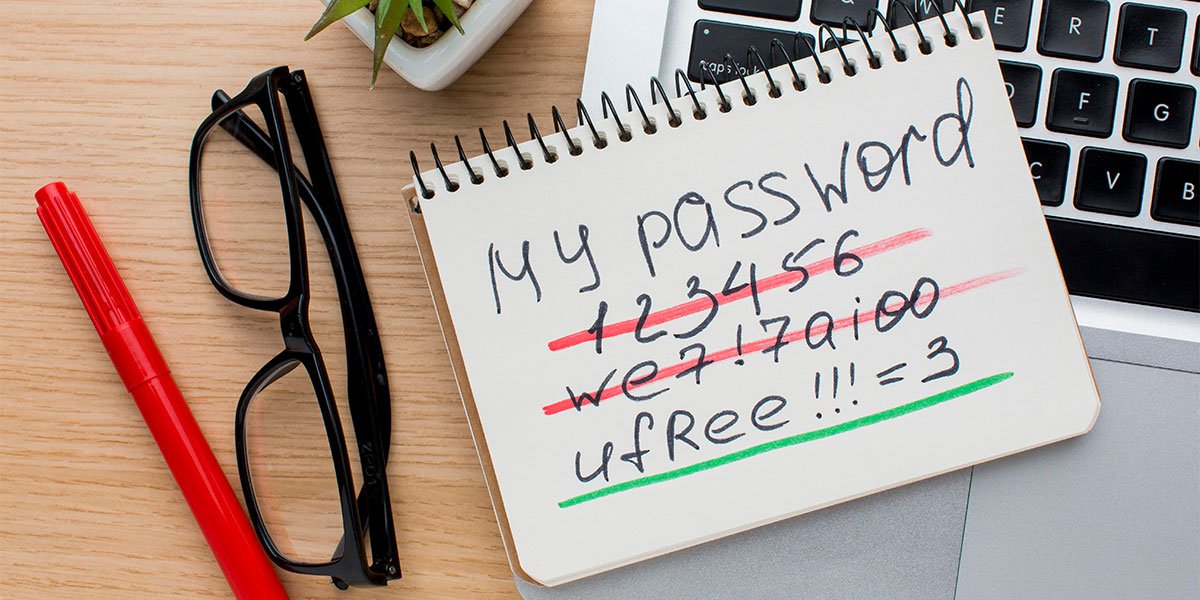 My password
123456
we7!7aioo
ufRee!!!=3
caps lock
Q W E R T
F G
C V B